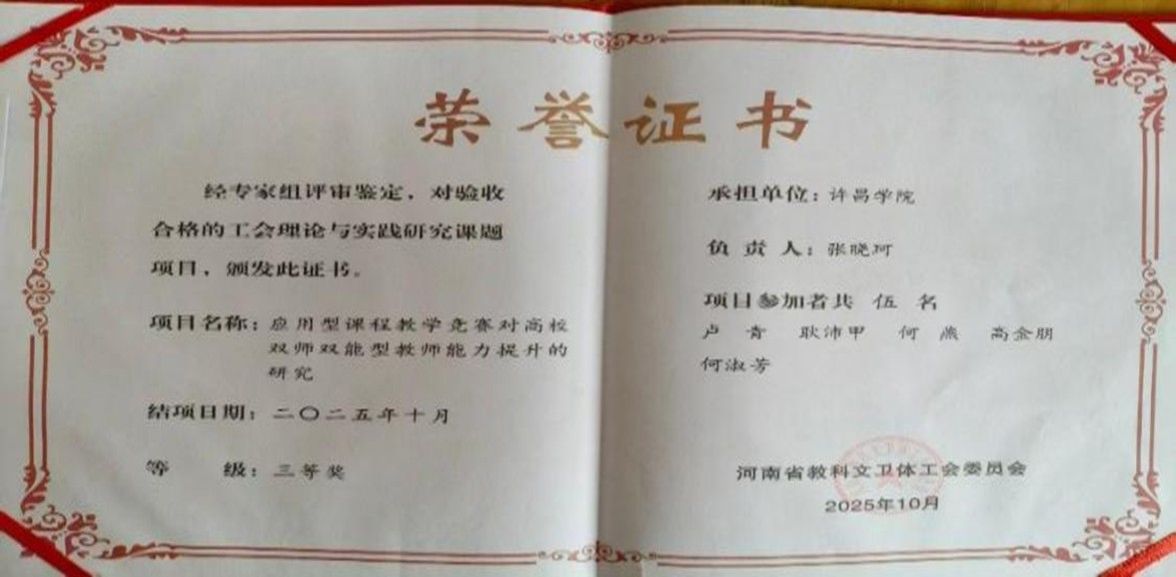 荣誉证书
经专家组评审鉴定，对验收
合格的工会理论与实践研究课题
项目，颁发此证书。
项目名称：应用型课程教学竞赛对高校
双师双能型教师能力提升的
研究
结项日期：二〇二五年十月
等 级：三等奖
承担单位：许昌学院
负 责 人：张晓珂
项目参加者共 伍 名
卢 青 耿沛甲 何 燕 高金朋
何淑芳
河南省教科文卫体工会委员会
2025年10月